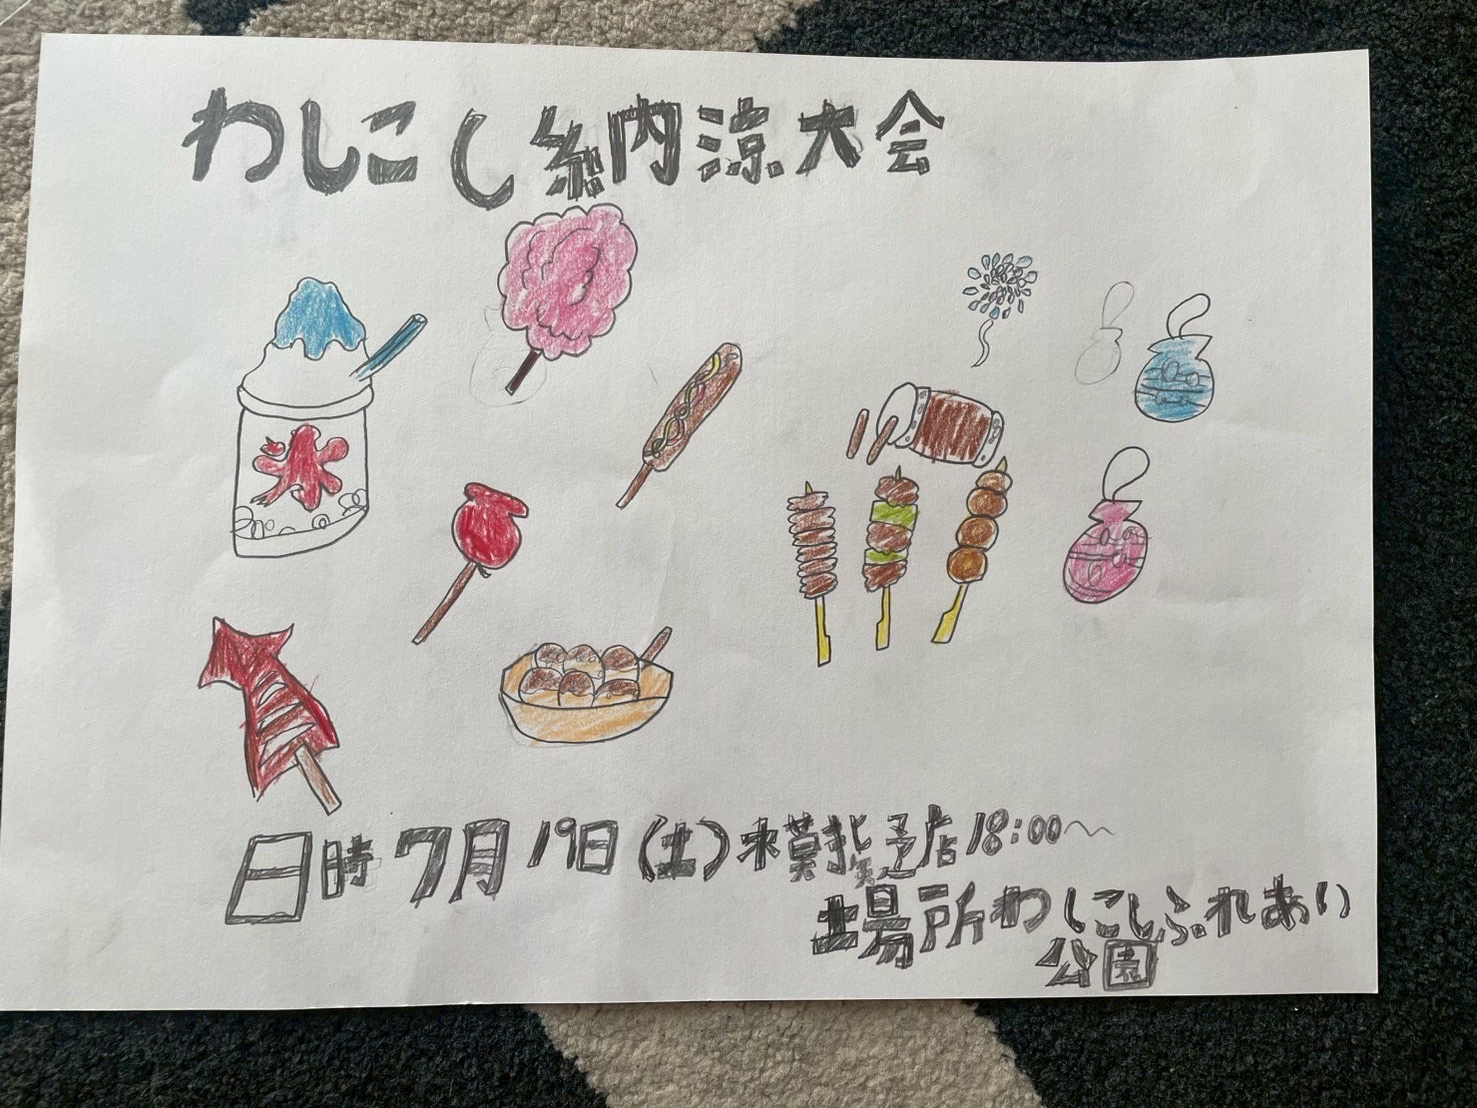 わしこし納涼大会
氷
日時7月19日(土)模擬店18:00〜
場所わしこしふれあい
公園